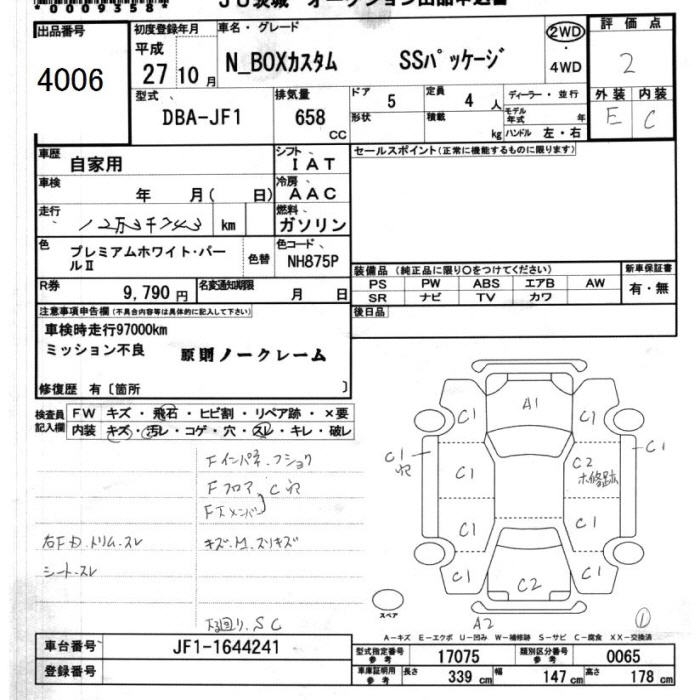 *0009358*
JU茨城 オークション出品申込書
出品番号
4006
初度登録年月
平成
27 10 月
車名・グレード
N_BOXカスタム SSパッケージ
2WD
・
4WD
評価点
2
外装 内装
E C
型式
DBA-JF1
排気量
658
CC
ドア 5
定員 4 人
形状
積載 kg
ディーラー・並行
モデル年式 年
ハンドル 左・右
車歴
自家用
シフト
IAT
車検
年 月( 日)
冷房
AAC
走行
12万3千743 km
燃料
ガソリン
色
プレミアムホワイト・パールⅡ
色替
色コード
NH875P
R券
9,790 円
名変通知期限
月 日
セールスポイント(正常に機能するものに限ります)
装備品 (純正品に限り○をつけてください)
PS PW ABS エアB AW
SR ナビ TV カワ
新車保証書
有・無
後日品
注意事項申告欄(不具合内容等は具体的に記入して下さい)
車検時走行97000km
ミッション不良 原則ノークレーム
修復歴 有〔箇所 〕
検査員記入欄
FW キズ・飛石・ヒビ割・リペア跡・×要
内装 キズ・汚レ・コゲ・穴・スレ・キレ・破レ
Fインパネ.フショク
Fフロア C
Fエメンバ
右Fドトリム.スレ
キズ.M.スリキズ
シート.スレ
下回り.SC
A1
C1 C1
C1
C1
C1
C2
C1 C1
C1 C1
C2
A2
スペア
①
A-キズ E-エクボ U-凹み W-補修跡 S-サビ C-腐食 XX-交換済
車台番号
JF1-1644241
登録番号
型式指定番号 参考
17075
類別区分番号 参考
0065
車庫証明用 参考
長さ 339 cm
幅 147 cm
高さ 178 cm